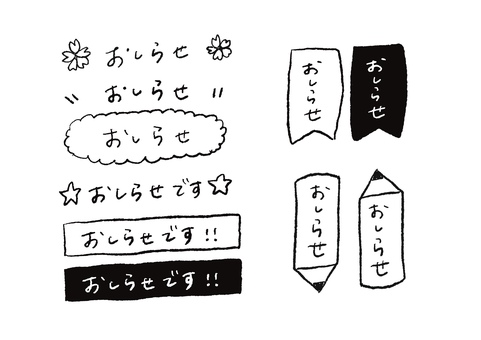 おしらせ
おしらせ
おしらせ
おしらせです
おしらせです!!
おしらせです!!
おしらせ
おしらせ
おしらせ
おしらせ